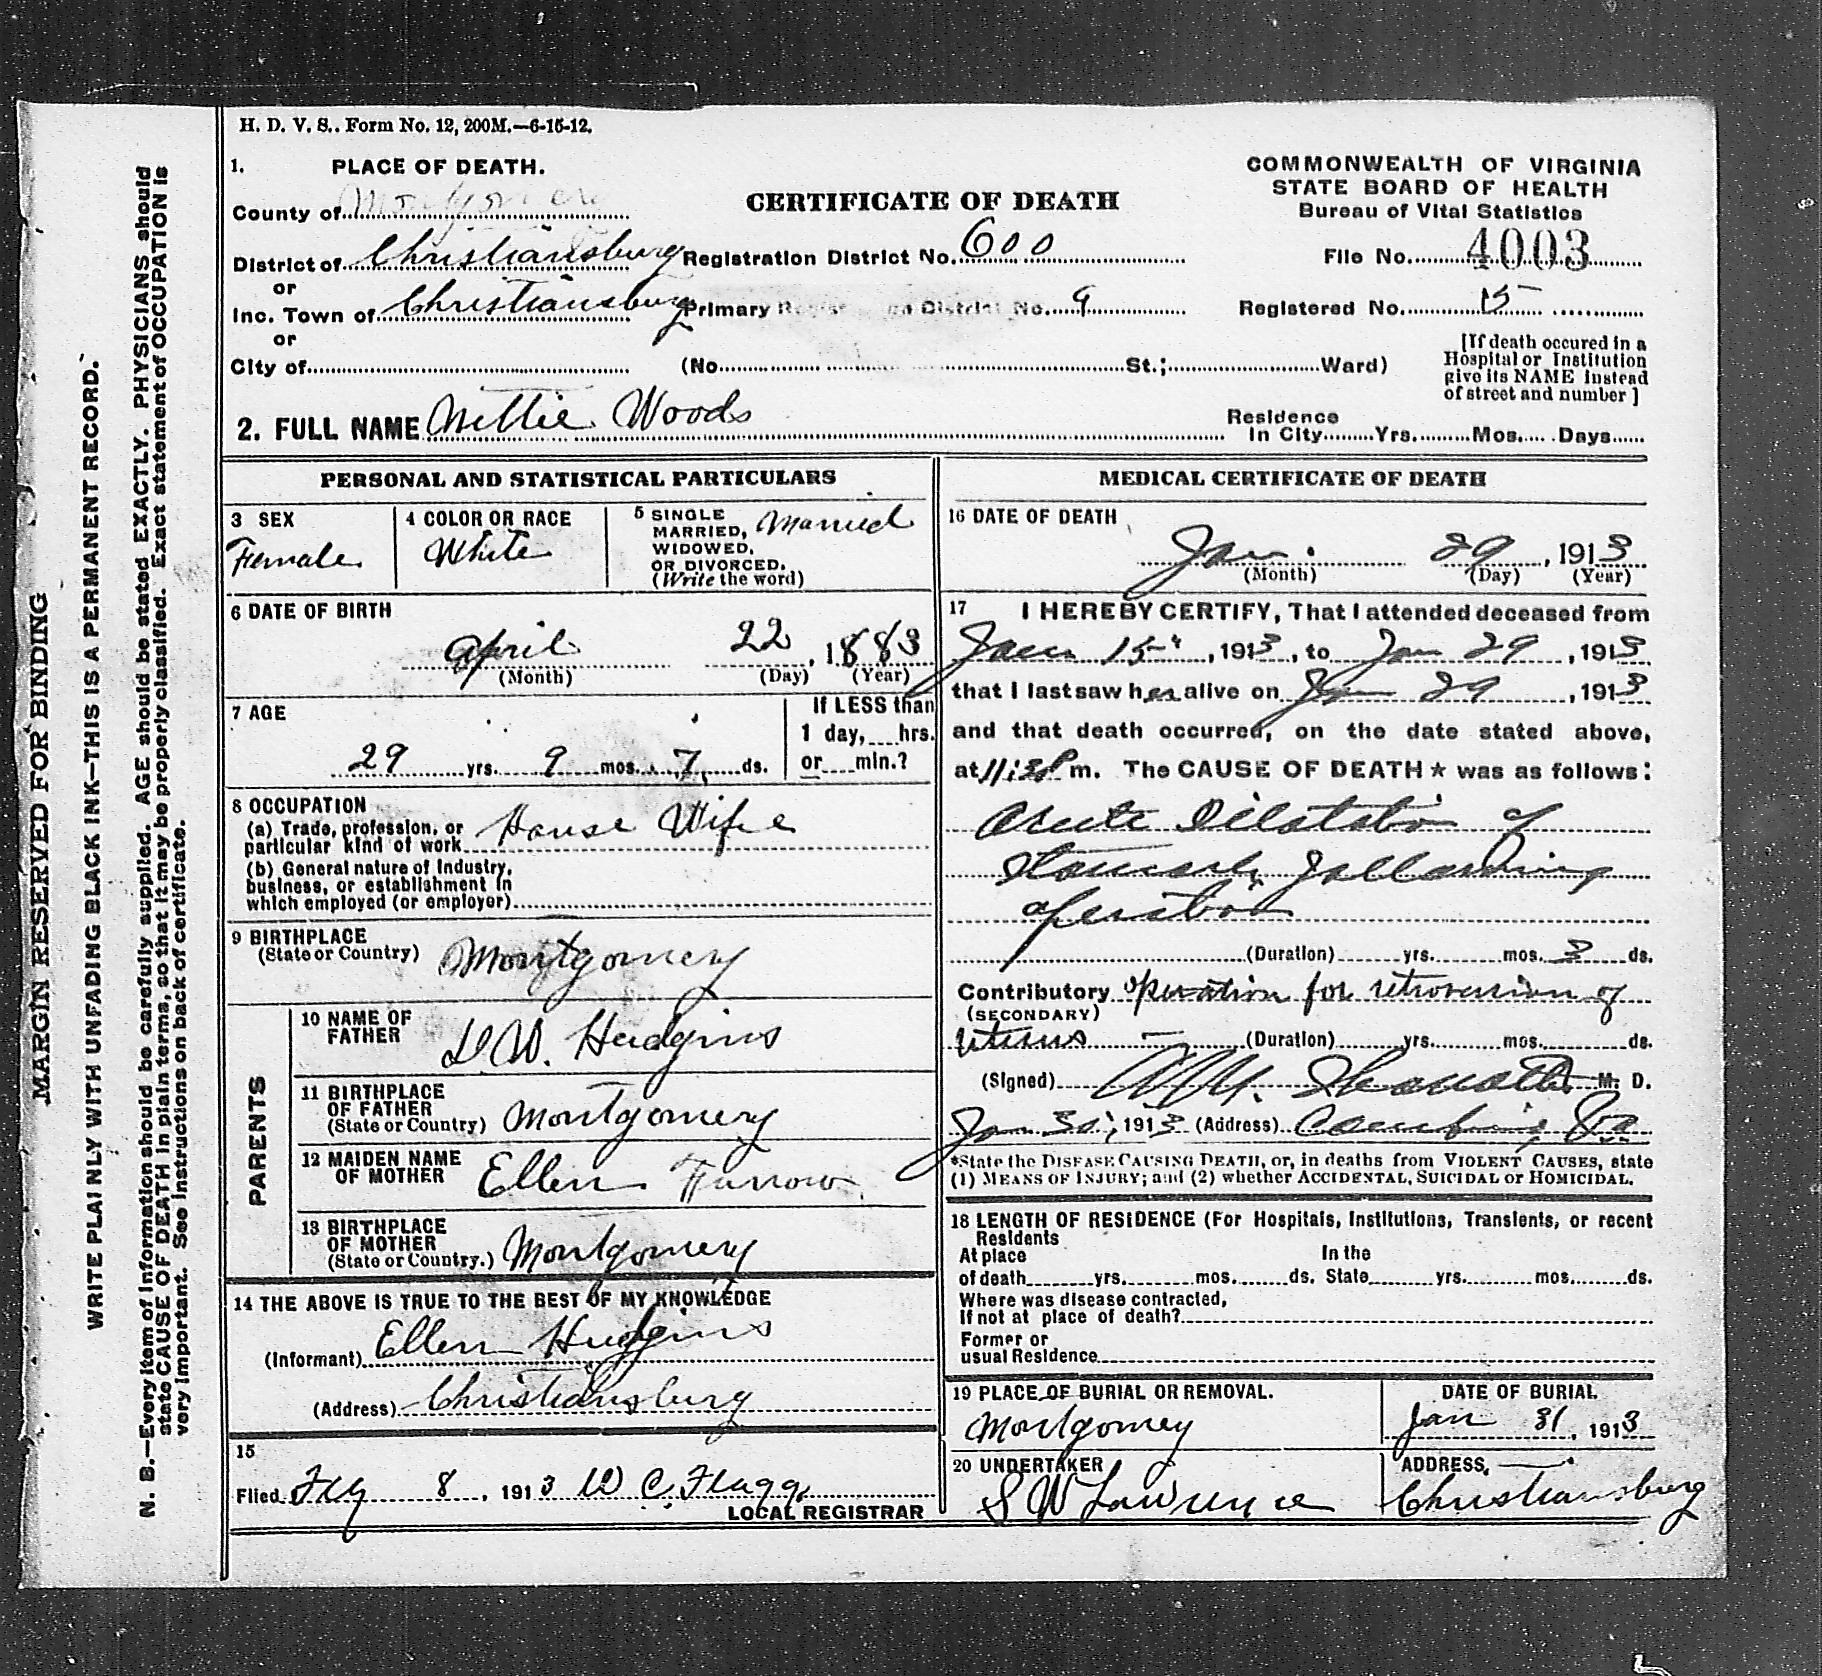 H. D. V. S.. Form No. 12, 200M.—6-15-12.
1. PLACE OF DEATH.
County of Montgomery
District of Christiansburg
or
Inc. Town of Christiansburg
or
City of
CERTIFICATE OF DEATH
Registration District No. 600
Primary Registration District No. 9
(No. St.; Ward)
COMMONWEALTH OF VIRGINIA
STATE BOARD OF HEALTH
Bureau of Vital Statistics
File No. 4003
Registered No. 15
[If death occured in a
Hospital or Institution
give its NAME instead
of street and number]
2. FULL NAME Nettie Woods
Residence
In City Yrs. Mos. Days
PERSONAL AND STATISTICAL PARTICULARS
3 SEX
Female
4 COLOR OR RACE
White
5 SINGLE
MARRIED,
WIDOWED,
OR DIVORCED.
(Write the word)
Married
6 DATE OF BIRTH
April 22, 1883
(Month) (Day) (Year)
7 AGE
29 yrs. 9 mos. 7 ds.
If LESS than
1 day, hrs.
or min.?
8 OCCUPATION
(a) Trade, profession, or
particular kind of work House Wife
(b) General nature of Industry,
business, or establishment in
which employed (or employer)
9 BIRTHPLACE
(State or Country) Montgomery
PARENTS
10 NAME OF
FATHER D.W. Hudgins
11 BIRTHPLACE
OF FATHER
(State or Country) Montgomery
12 MAIDEN NAME
OF MOTHER Ellen Furrow
13 BIRTHPLACE
OF MOTHER
(State or Country.) Montgomery
14 THE ABOVE IS TRUE TO THE BEST OF MY KNOWLEDGE
(Informant) Ellen Hudgins
(Address) Christiansburg
15
Filed 8, 1913 W C. Flagg
LOCAL REGISTRAR
MEDICAL CERTIFICATE OF DEATH
16 DATE OF DEATH
Jan. 29, 1913
(Month) (Day) (Year)
17 I HEREBY CERTIFY, That I attended deceased from
Jan 15, 1913, to Jan 29, 1913
that I last saw her alive on Jan 29, 1913
and that death occurred, on the date stated above,
at m. The CAUSE OF DEATH ★ was as follows:
Acute Dilatation of
Stomach following
operation
(Duration) yrs. mos. 3 ds.
Contributory operation for retroversion of
(SECONDARY)
Uterus (Duration) yrs. mos. ds.
(Signed) M. D.
Jan 30, 1913 (Address) Cambria, Va
*State the DISEASE CAUSING DEATH, or, in deaths from VIOLENT CAUSES, state
(1) MEANS OF INJURY; and (2) whether ACCIDENTAL, SUICIDAL or HOMICIDAL.
18 LENGTH OF RESIDENCE (For Hospitals, Institutions, Transients, or recent
Residents
At place In the
of death yrs. mos. ds. State yrs. mos. ds.
Where was disease contracted,
If not at place of death?
Former or
usual Residence
19 PLACE OF BURIAL OR REMOVAL.
Montgomey
DATE OF BURIAL
Jan 31, 1913
20 UNDERTAKER
S W Lawrence
ADDRESS,
Christiansburg
MARGIN RESERVED FOR BINDING
WRITE PLAINLY WITH UNFADING BLACK INK—THIS IS A PERMANENT RECORD.
N. B.—Every item of Information should be carefully supplied. AGE should be stated EXACTLY. PHYSICIANS should
state CAUSE OF DEATH in plain terms, so that it may be properly classified. Exact statement of OCCUPATION is
very important. See instructions on back of certificate.